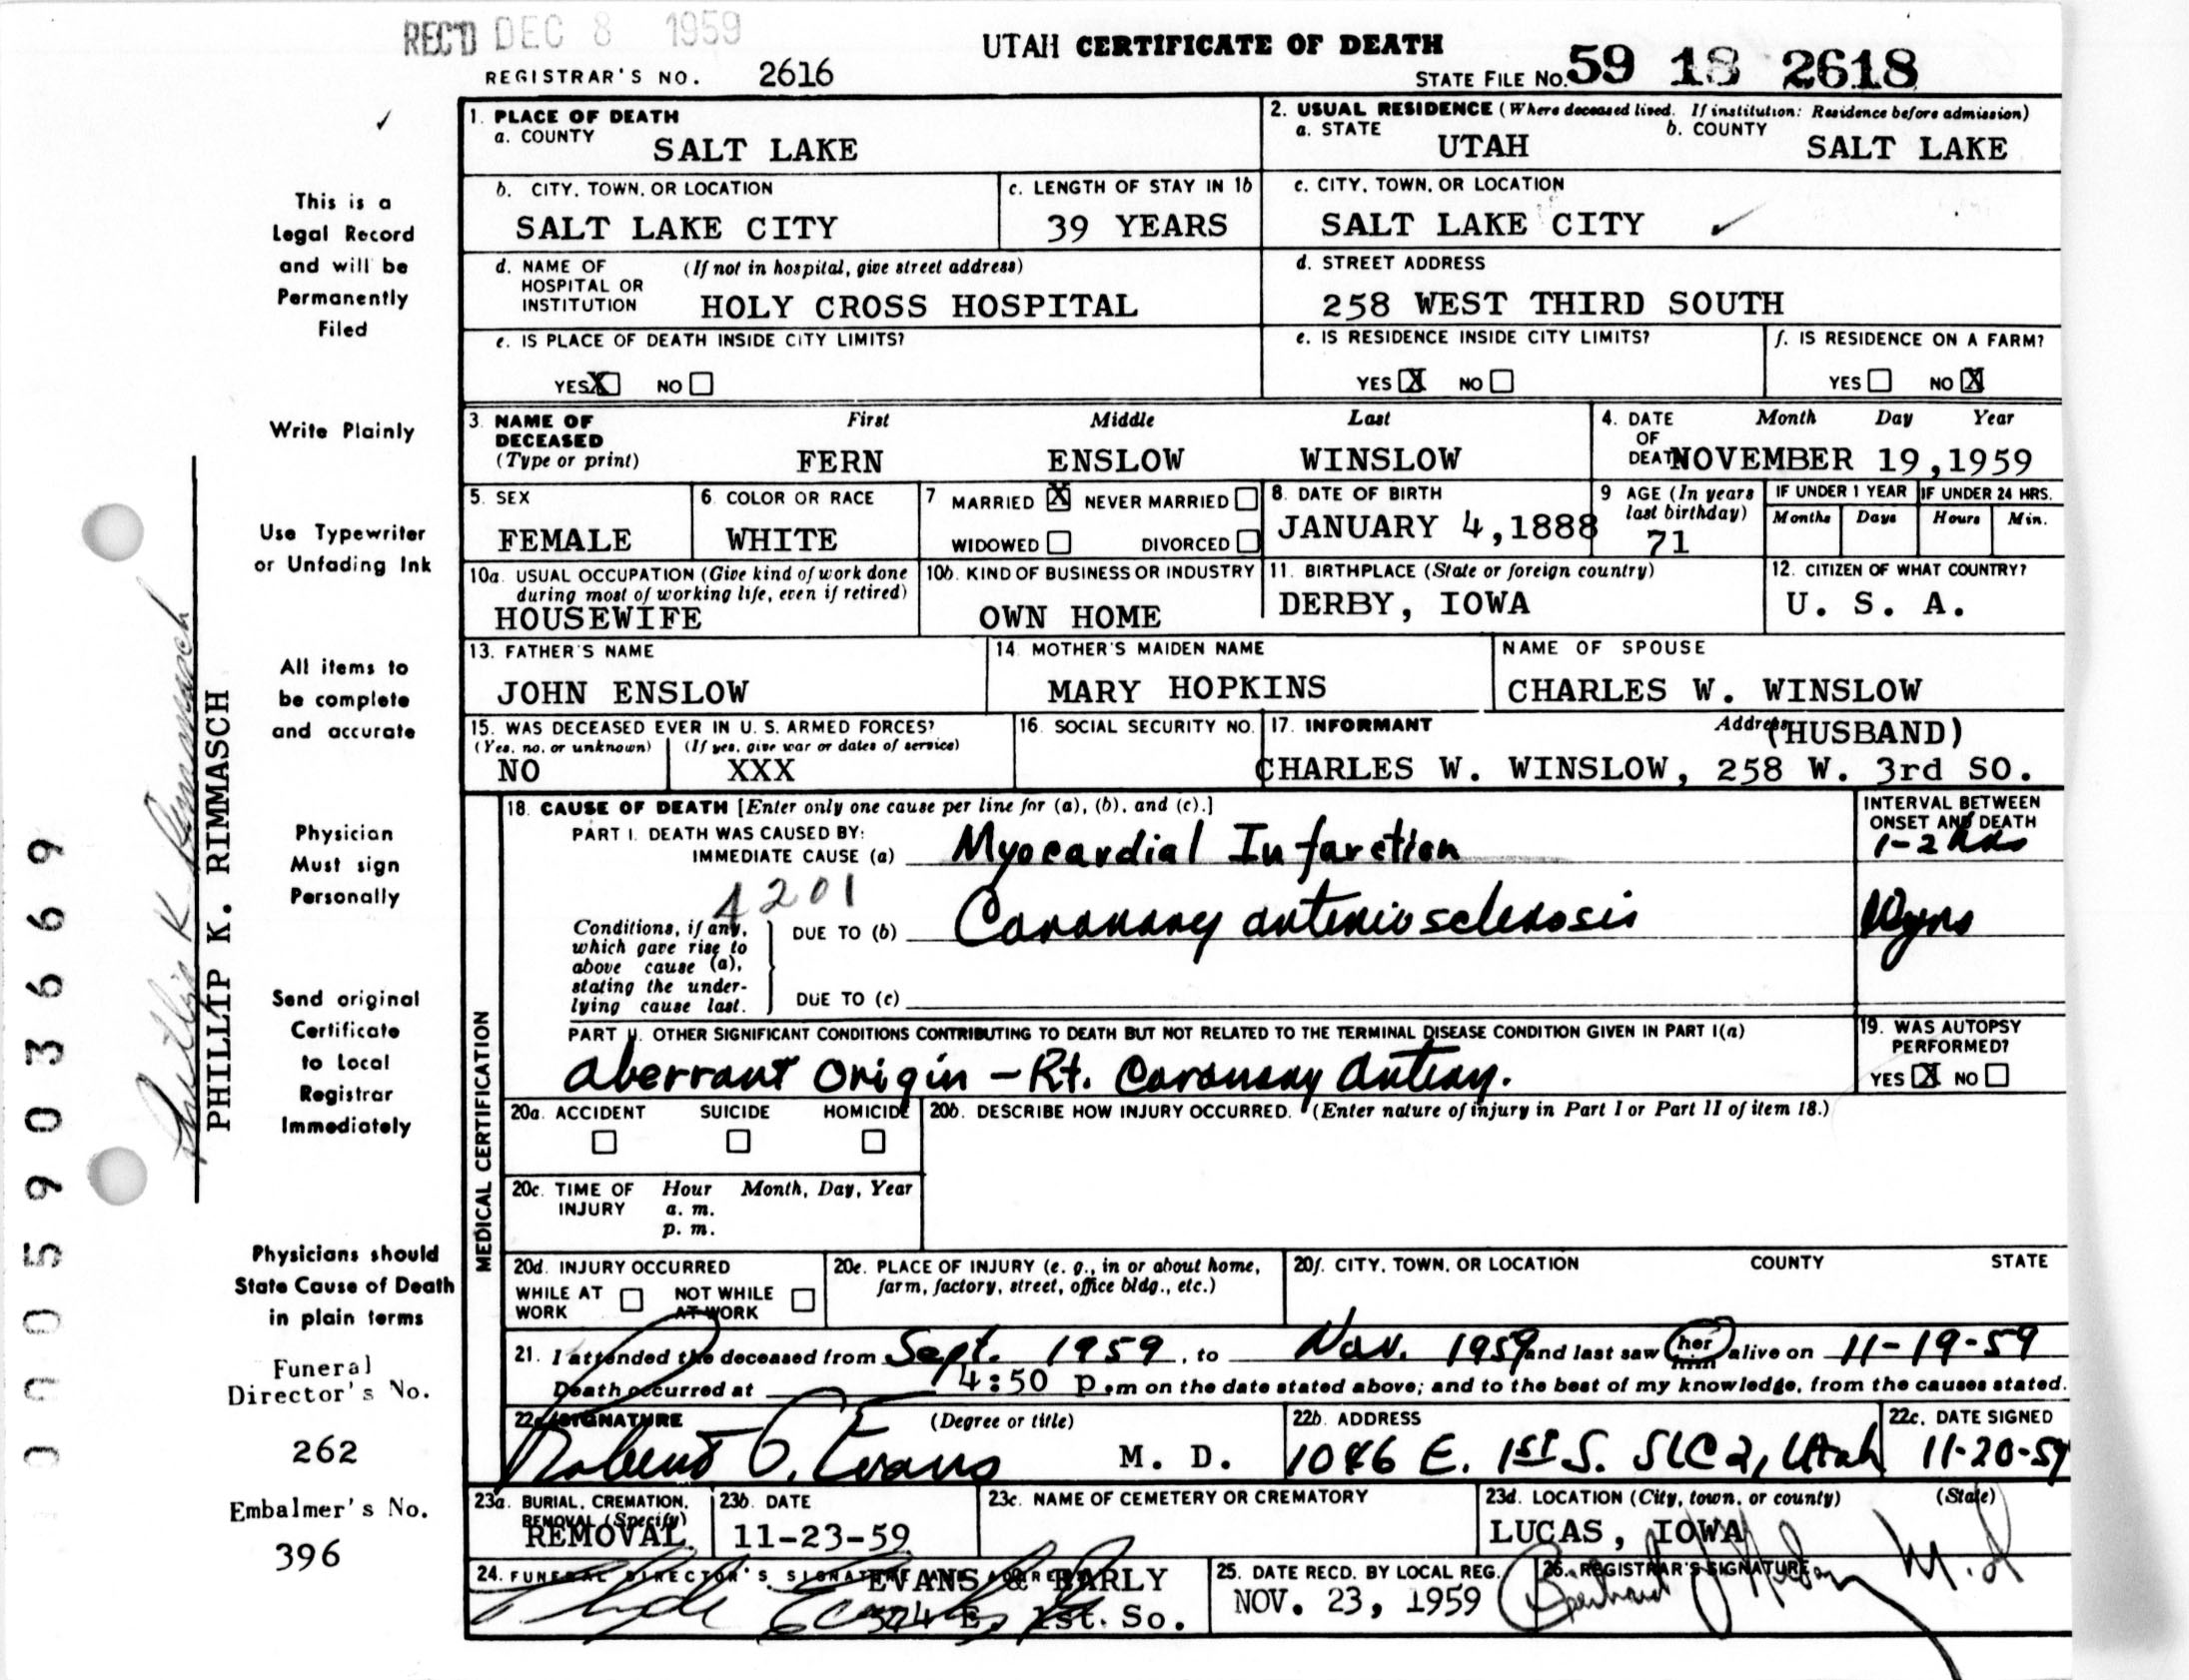 REC'D DEC 8 1959
UTAH CERTIFICATE OF DEATH
REGISTRAR'S NO. 2616
STATE FILE NO. 59 18 2618
1. PLACE OF DEATH
a. COUNTY
SALT LAKE
2. USUAL RESIDENCE (Where deceased lived. If institution: Residence before admission)
a. STATE b. COUNTY
UTAH SALT LAKE
b. CITY, TOWN, OR LOCATION
SALT LAKE CITY
c. LENGTH OF STAY IN 1b
39 YEARS
c. CITY, TOWN, OR LOCATION
SALT LAKE CITY
d. NAME OF HOSPITAL OR INSTITUTION (If not in hospital, give street address)
HOLY CROSS HOSPITAL
d. STREET ADDRESS
258 WEST THIRD SOUTH
e. IS PLACE OF DEATH INSIDE CITY LIMITS?
YES X NO
e. IS RESIDENCE INSIDE CITY LIMITS?
YES X NO
f. IS RESIDENCE ON A FARM?
YES NO X
3. NAME OF DECEASED (Type or print)
First Middle Last
FERN ENSLOW WINSLOW
4. DATE OF DEATH Month Day Year
NOVEMBER 19,1959
5. SEX
FEMALE
6. COLOR OR RACE
WHITE
7 MARRIED X NEVER MARRIED
WIDOWED DIVORCED
8. DATE OF BIRTH
JANUARY 4,1888
9 AGE (In years last birthday)
71
IF UNDER 1 YEAR
Months Days
IF UNDER 24 HRS.
Hours Min.
10a. USUAL OCCUPATION (Give kind of work done during most of working life, even if retired)
HOUSEWIFE
10b. KIND OF BUSINESS OR INDUSTRY
OWN HOME
11. BIRTHPLACE (State or foreign country)
DERBY, IOWA
12. CITIZEN OF WHAT COUNTRY?
U. S. A.
13. FATHER'S NAME
JOHN ENSLOW
14. MOTHER'S MAIDEN NAME
MARY HOPKINS
NAME OF SPOUSE
CHARLES W. WINSLOW
15. WAS DECEASED EVER IN U. S. ARMED FORCES?
(Yes, no, or unknown) (If yes, give war or dates of service)
NO XXX
16. SOCIAL SECURITY NO.
17. INFORMANT Address
(HUSBAND)
CHARLES W. WINSLOW, 258 W. 3rd SO.
MEDICAL CERTIFICATION
18. CAUSE OF DEATH [Enter only one cause per line for (a), (b), and (c).]
INTERVAL BETWEEN ONSET AND DEATH
PART I. DEATH WAS CAUSED BY:
IMMEDIATE CAUSE (a) Myocardial Infarction
1-2 hrs
4201
Conditions, if any, which gave rise to above cause (a), stating the underlying cause last.
DUE TO (b) Coronary arteriosclerosis
DUE TO (c)
PART II. OTHER SIGNIFICANT CONDITIONS CONTRIBUTING TO DEATH BUT NOT RELATED TO THE TERMINAL DISEASE CONDITION GIVEN IN PART I(a)
Aberrant Origin - Rt. Coronary Artery.
19. WAS AUTOPSY PERFORMED?
YES X NO
20a. ACCIDENT SUICIDE HOMICIDE
20b. DESCRIBE HOW INJURY OCCURRED. (Enter nature of injury in Part I or Part II of item 18.)
20c. TIME OF INJURY Hour Month, Day, Year
a. m.
p. m.
20d. INJURY OCCURRED
WHILE AT WORK NOT WHILE AT WORK
20e. PLACE OF INJURY (e. g., in or about home, farm, factory, street, office bldg., etc.)
20f. CITY, TOWN, OR LOCATION COUNTY STATE
21. I attended the deceased from Sept. 1959, to Nov. 1959 and last saw her him alive on 11-19-59
Death occurred at 4:50 p.m on the date stated above; and to the best of my knowledge, from the causes stated.
22a. SIGNATURE (Degree or title)
Robert O. Evans M. D.
22b. ADDRESS
1046 E. 1st S. SLC 2, Utah
22c. DATE SIGNED
11-20-59
23a. BURIAL, CREMATION, REMOVAL (Specify)
REMOVAL
23b. DATE
11-23-59
23c. NAME OF CEMETERY OR CREMATORY
23d. LOCATION (City, town, or county) (State)
LUCAS, IOWA
24. FUNERAL DIRECTOR'S SIGNATURE ADDRESS
EVANS & EARLY
574 E. 1st. So.
25. DATE RECD. BY LOCAL REG.
NOV. 23, 1959
26. REGISTRAR'S SIGNATURE
M.D
This is a
Legal Record
and will be
Permanently
Filed
Write Plainly
Use Typewriter
or Unfading Ink
All items to
be complete
and accurate
Physician
Must sign
Personally
Send original
Certificate
to Local
Registrar
Immediately
Physicians should
State Cause of Death
in plain terms
Funeral
Director's No.
262
Embalmer's No.
396
Phillip K Rimmasch
PHILLIP K. RIMMASCH
005903669